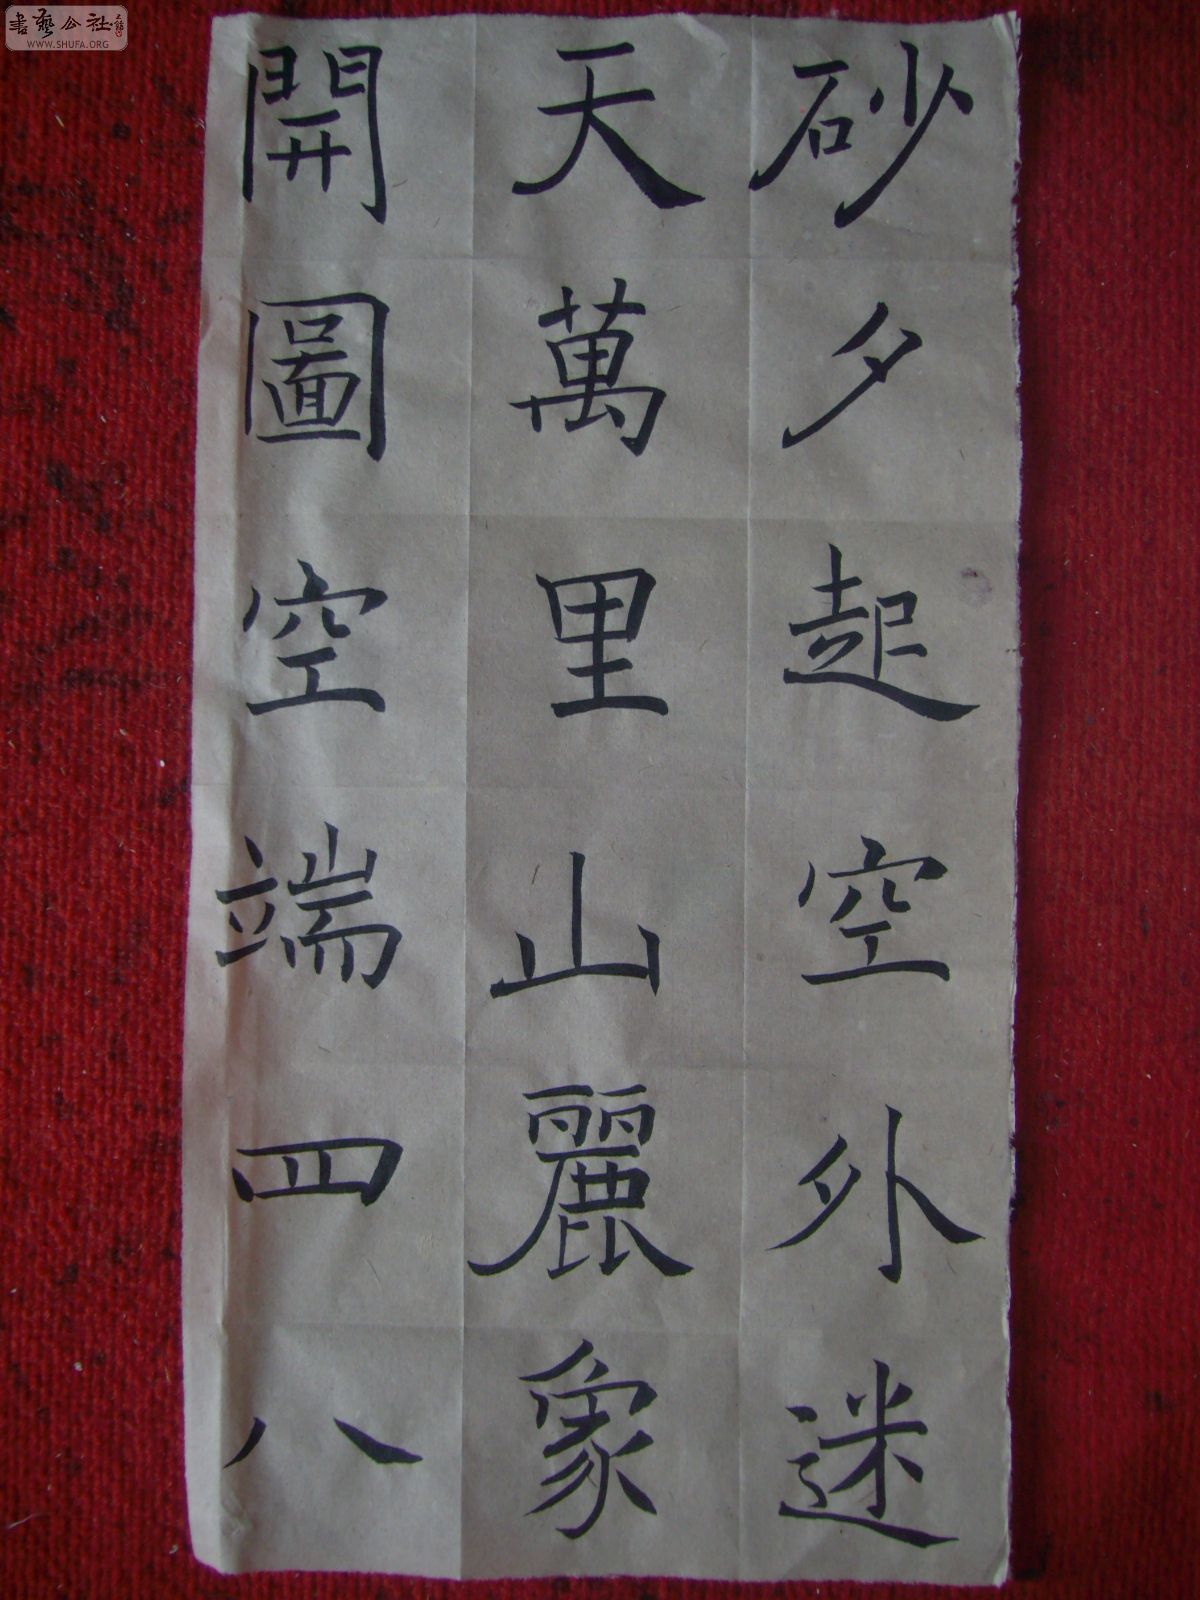 砂夕起空外迷
天萬里山麗象
開圖空端四八
書藝公社
WWW.SHUFA.ORG